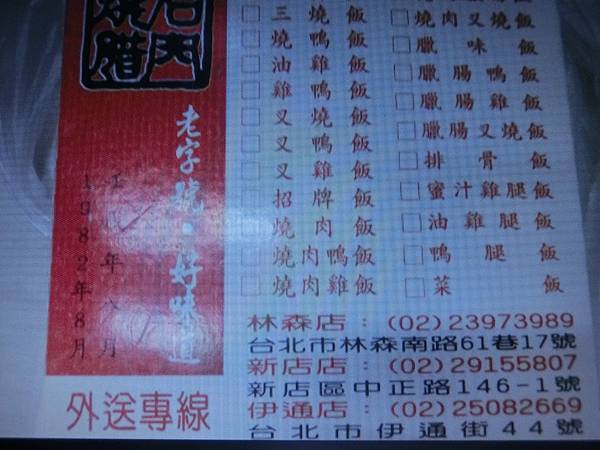 燒腊
老字號‧好味道
1982年8月
外送專線
三燒飯
燒鴨飯
油雞飯
雞鴨飯
叉燒飯
叉鴨飯
叉雞飯
招牌飯
燒肉飯
燒肉鴨飯
燒肉雞飯
燒肉叉燒飯
臘味飯
臘腸鴨飯
臘腸雞飯
臘腸叉燒飯
排骨飯
蜜汁雞腿飯
油雞腿飯
鴨腿飯
菜飯
林森店:(02)23973989
台北市林森南路61巷17號
新店店:(02)29155807
新店區中正路146-1號
伊通店:(02)25082669
台北市伊通街44號